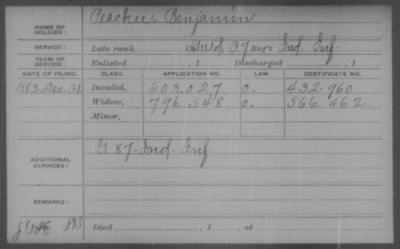 NAME OF SOLDIER: Peachee, Benjamin
SERVICE: Late rank, Unid. 37 Reg't Ind. Inf.
TERM OF SERVICE: Enlisted , 1 Discharged , 1
DATE OF FILING. CLASS. APPLICATION NO. LAW. CERTIFICATE NO.
1883 Dec. 31 Invalid, 503,027 0. 432.960
Widow, 796,548 0. 566.462
Minor,
ADDITIONAL SERVICES: G 87. Ind. Inf.
REMARKS:
Died , 1 , at